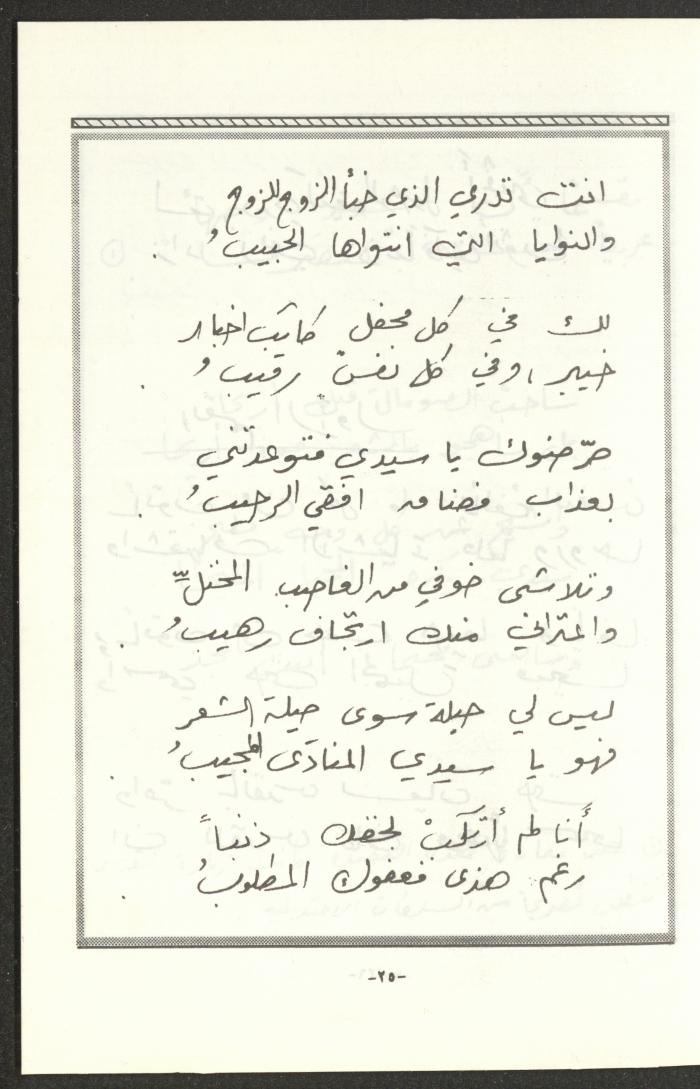 انت تدري الذي خبأ الزوج للزوج
والنوايا التي انتواها الحبيبُ .
لك في كل محفل كاتب اخبار
خبير ، وفي كل نفسٍ رقيبُ .
حرّضوك يا سيدي فتوعدتني
بعذاب فضاق افقي الرحيبُ .
وتلاشى خوفي من الغاصب المحتلِّ
واعتراني منك ارتجاف رهيبُ .
ليس لي حيلة سوى حيلة الشعر
فهو يا سيدي المنادَى المجيبُ .
أنا لم أرتكبْ لحقك ذنباً
رغم هذى فعفوك المطلوبُ .
-٢٥-